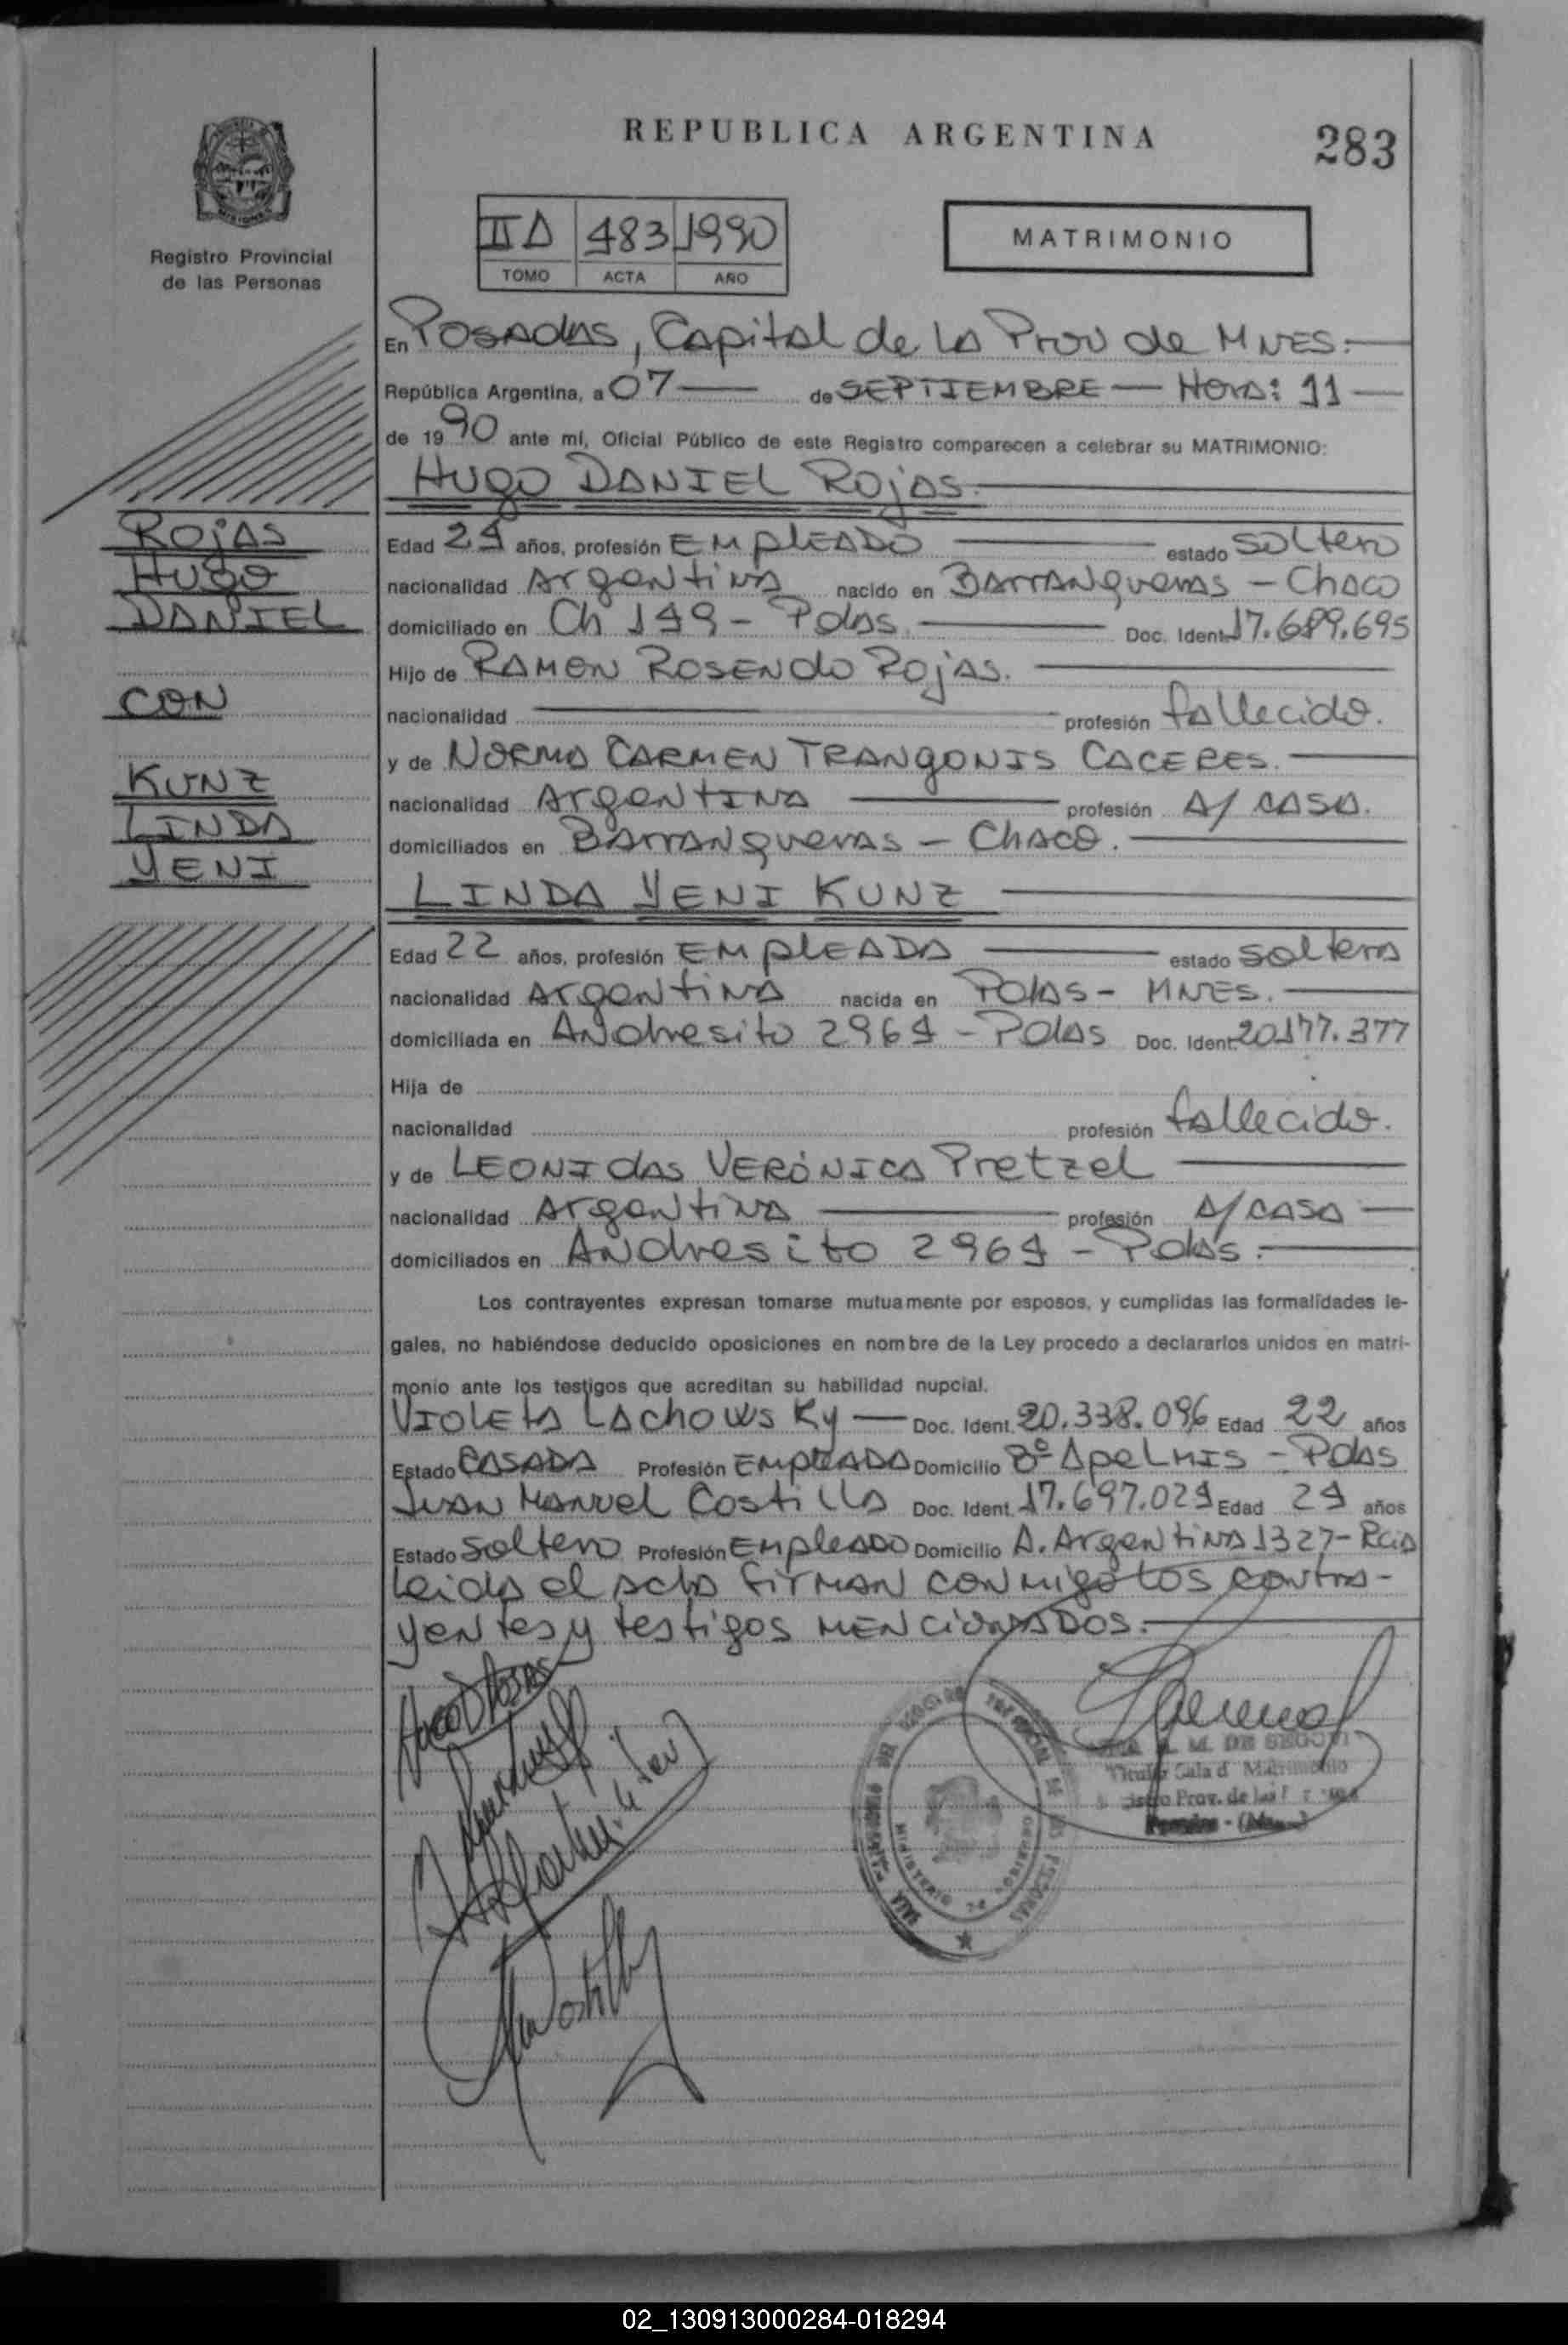 REPUBLICA ARGENTINA
283
Registro Provincial
de las Personas
IIA 483 1990
TOMO ACTA AÑO
MATRIMONIO
En Posadas, Capital de la Prov de Mnes.
República Argentina, a 07 de SEPTIEMBRE Hora: 11
de 1990 ante mí, Oficial Público de este Registro comparecen a celebrar su MATRIMONIO:
HUGO DANIEL ROJAS.
ROJAS
HUGO
DANIEL
CON
KUNZ
LINDA
YENI
Edad 24 años, profesión EMPLEADO estado soltero
nacionalidad Argentina nacido en Barranqueras - Chaco
domiciliado en Ch 149 - Pdas. Doc. Ident. 17.689.695
Hijo de RAMON ROSENDO ROJAS.
nacionalidad profesión fallecido.
y de NORMA CARMEN TRANGONIS CACERES.
nacionalidad Argentina profesión A/ casa.
domiciliados en Barranqueras - Chaco.
LINDA YENI KUNZ
Edad 22 años, profesión EMPLEADA estado soltera
nacionalidad Argentina nacida en Pdas - Mnes.
domiciliada en Andresito 2964 - Pdas Doc. Ident. 20.177.377
Hija de
nacionalidad profesión fallecido.
y de LEONIDAS VERÓNICA Pretzel
nacionalidad Argentina profesión A/ casa
domiciliados en Andresito 2964 - Pdas.
Los contrayentes expresan tomarse mutuamente por esposos, y cumplidas las formalidades le-
gales, no habiéndose deducido oposiciones en nombre de la Ley procedo a declararlos unidos en matri-
monio ante los testigos que acreditan su habilidad nupcial.
Violeta Lachowsky Doc. Ident. 20.338.096 Edad 22 años
Estado CASADA Profesión EMPLEADA Domicilio Bº - Pdas
Juan Manuel Costilla Doc. Ident. 17.697.024 Edad 24 años
Estado soltero Profesión Empleado Domicilio A. Argentina 1327 - Rcia
Leida el acta firman conmigo los contra-
yentes y testigos mencionados.
M. DE SEGOVI
Titular Sala d Matrimonio
Prov. de las
MINISTERIO DE GOBIERNO
02_130913000284-018294